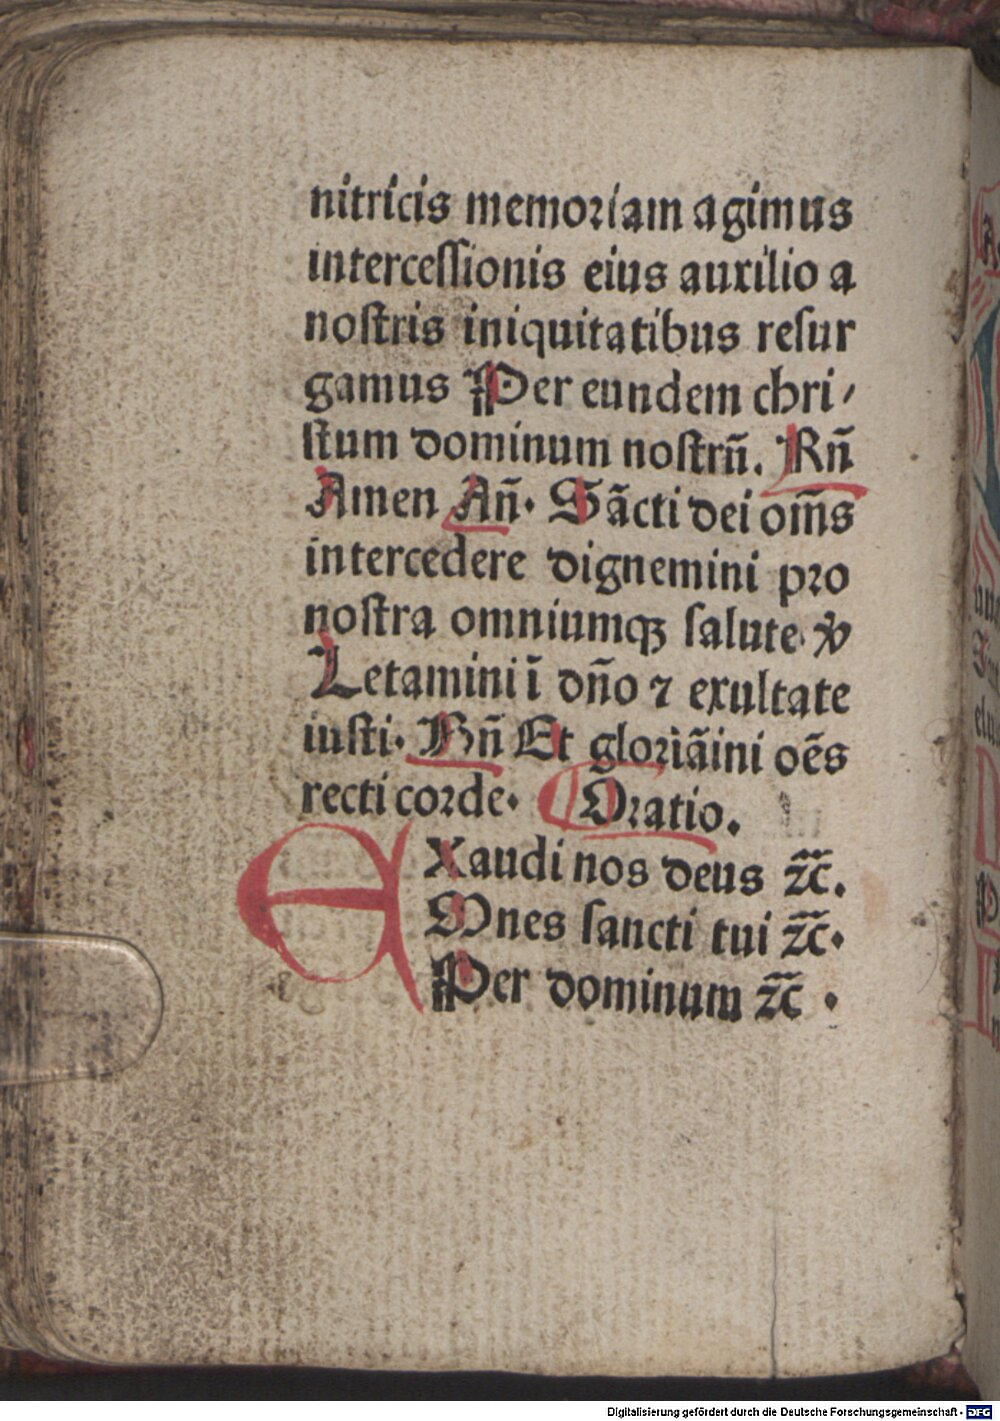 nitricis memoriam agimus
intercessionis eius auxilio a
nostris iniquitatibus resur
gamus Per eundem chri/
stum dominum nostrū. Rñ
Amen Añ. Sācti dei om̄s
intercedere dignemini pro
nostra omniumqꝫ salute ℣
Letamini ī dño ⁊ exultate
iusti. Rñ Et gloriāini oēs
recti corde. Oratio.
EXaudi nos deus ⁊c̄.
Omnes sancti tui ⁊c̄.
Per dominum ⁊c̄.
Digitalisierung gefördert durch die Deutsche Forschungsgemeinschaft - DFG